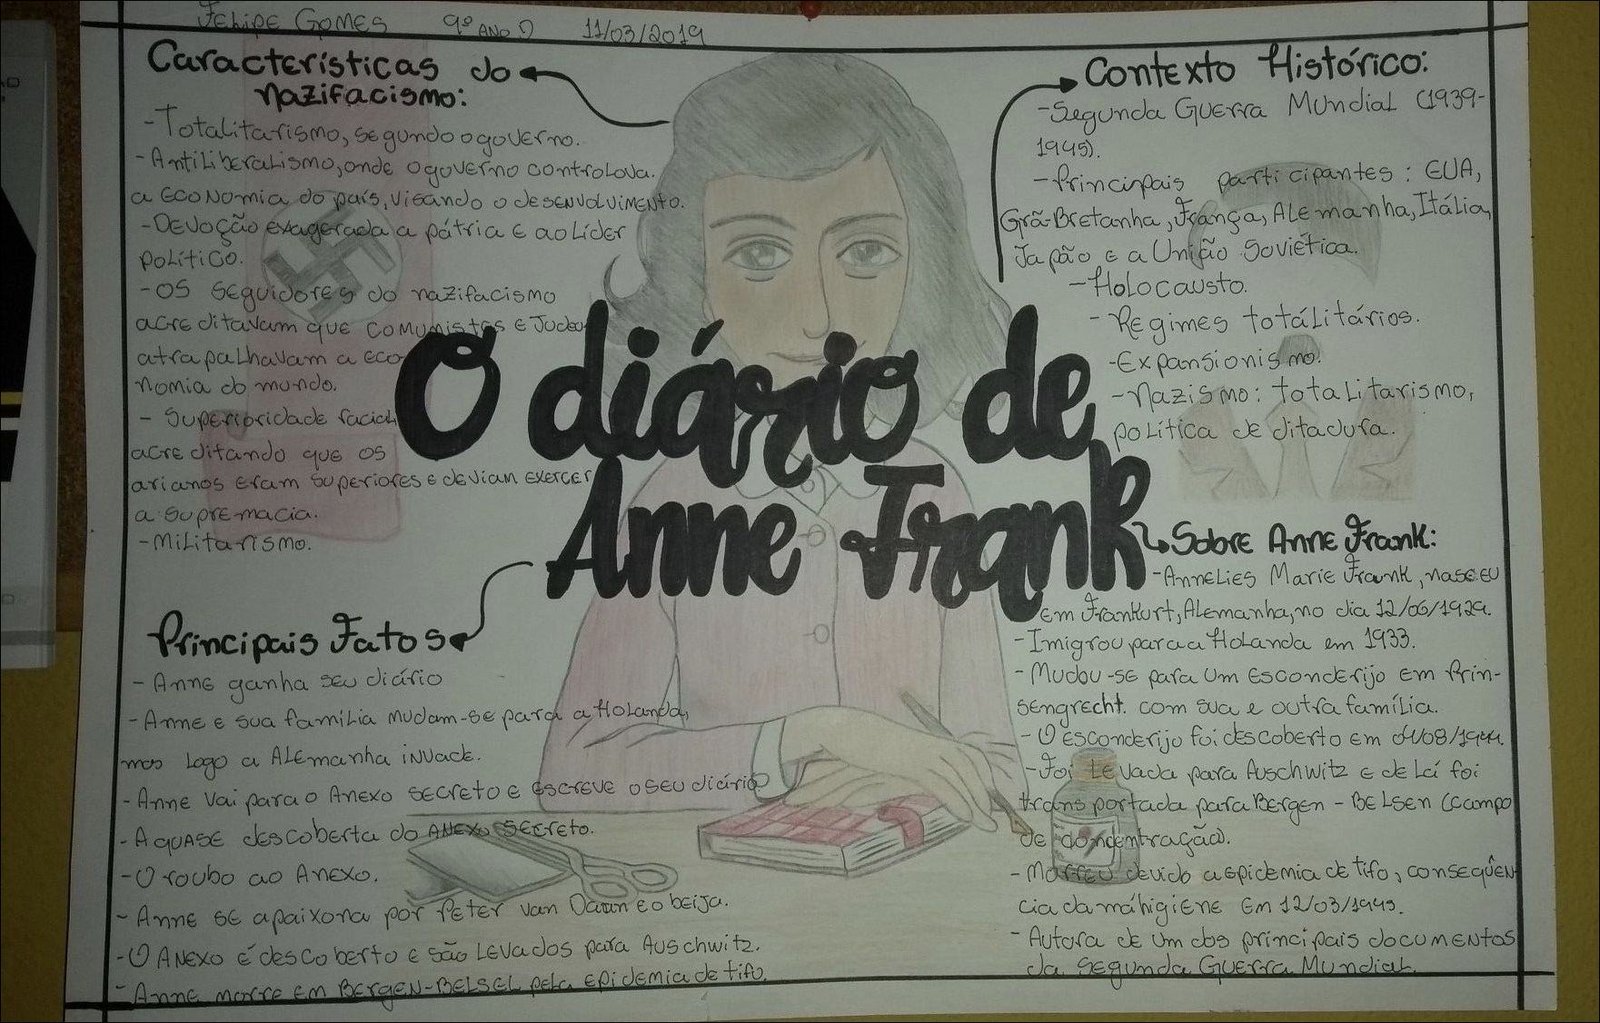 Felipe Gomes 9º ano D 11/03/2019
Características do
nazifacismo:
-Totalitarismo, segundo o governo.
-Antiliberalismo, onde o governo controlava.
a economia do país, visando o desenvolvimento.
-Devoção exagerada a pátria e ao líder
político.
-Os seguidores do nazifacismo
acreditavam que comunistas e Judeus
atrapalhavam a eco
nomia do mundo.
- Superioridade racial
acreditando que os
arianos eram superiores e deviam exercer
a supremacia.
-Militarismo.
Contexto Histórico:
-Segunda Guerra Mundial (1939-
1945).
-Principais participantes: EUA,
Grã-Bretanha, França, Alemanha, Itália,
Japão e a União Soviética.
-Holocausto.
-Regimes totálitários.
-Expansionismo.
-Nazismo: totalitarismo,
política de ditadura.
O diário de
Anne Frank
Principais Fatos
- Anne ganha seu diário
-Anne e sua família mudam-se para a Holanda,
mas logo a Alemanha invade.
-Anne vai para o Anexo secreto e escreve o seu diário
-A quase descoberta do Anexo secreto.
-O roubo ao Anexo.
-Anne se apaixona por Peter van Daan e o beija.
-O Anexo é descoberto e são levados para Auschwitz.
-Anne morre em Bergen-Belsel pela epidemia de tifo.
Sobre Anne Frank:
-Annelies Marie Frank, nasceu
em Frankurt, Alemanha, no dia 12/06/1929.
-Imigrou para a Holanda em 1933.
-Mudou-se para um esconderijo em Prin-
sengrecht. com sua e outra família.
-O esconderijo foi descoberto em 04/08/1944.
-Foi levada para Auschwitz e de lá foi
transportada para Bergen-Belsen (campo
de concentração).
-Morreu devido a epidemia de tifo, consequên
cia da má higiene em 12/03/1945.
-Autora de um dos principais documentos
da Segunda Guerra Mundial.